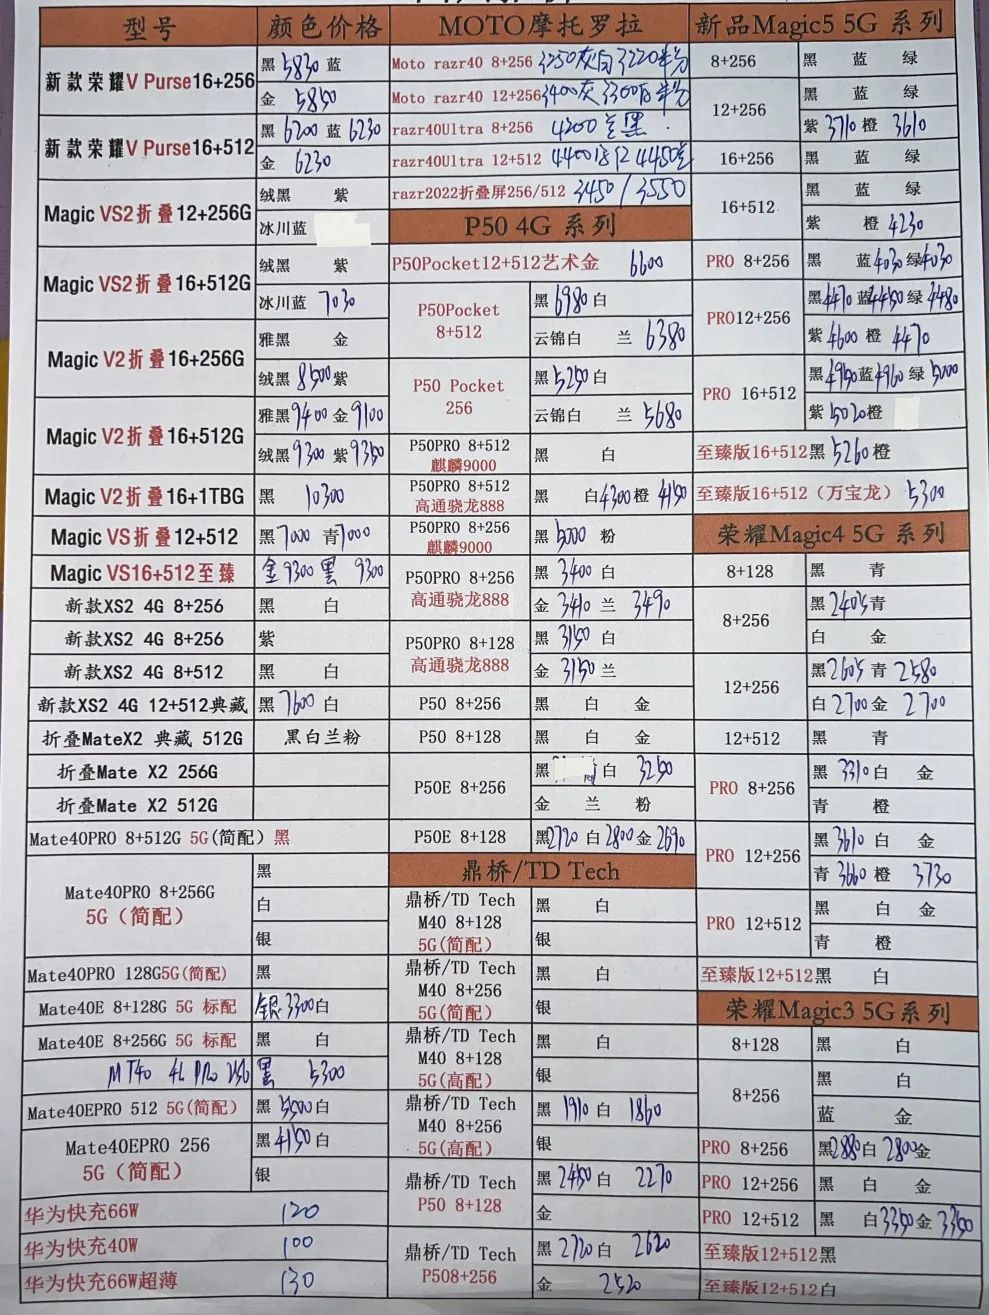 型号 颜色价格
新款荣耀V Purse16+256
黑 5830 蓝
金 5850
新款荣耀V Purse16+512
黑 6200 蓝 6230
金 6230
Magic VS2折叠12+256G
绒黑 紫
冰川蓝
Magic VS2折叠16+512G
绒黑 紫
冰川蓝 7030
Magic V2折叠16+256G
雅黑 金
绒黑 8500 紫
Magic V2折叠16+512G
雅黑 9400 金 9100
绒黑 9300 紫 9350
Magic V2折叠16+1TBG
黑 10300
Magic VS折叠12+512
黑 7000 青 7000
Magic VS16+512至臻
金 9300 黑 9300
新款XS2 4G 8+256
黑 白
新款XS2 4G 8+256
紫
新款XS2 4G 8+512
黑 白
新款XS2 4G 12+512典藏
黑 7600 白
折叠MateX2 典藏 512G
黑白兰粉
折叠Mate X2 256G
折叠Mate X2 512G
Mate40PRO 8+512G 5G(简配) 黑
Mate40PRO 8+256G
5G(简配)
黑
白
银
Mate40PRO 128G5G(简配)
黑
Mate40E 8+128G 5G 标配
银 3300 白
Mate40E 8+256G 5G 标配
黑 白
MT40 4G Pro 256 黑 5300
Mate40EPRO 512 5G(简配)
黑 白
Mate40EPRO 256
5G(简配)
黑 4150 白
银
华为快充66W 120
华为快充40W 100
华为快充66W超薄 130
MOTO摩托罗拉
Moto razr40 8+256 3250灰白 3220
Moto razr40 12+256 3400灰 3300
razr40Ultra 8+256 4200 黑
razr40Ultra 12+512 4400 4450
razr2022折叠屏256/512 3450/3550
P50 4G 系列
P50Pocket12+512艺术金 6600
P50Pocket
8+512
黑 6980 白
云锦白 兰 6380
P50 Pocket
256
黑 5250 白
云锦白 兰 5680
P50PRO 8+512
麒麟9000
黑 白
P50PRO 8+512
高通骁龙888
黑 白 4300 橙 4150
P50PRO 8+256
麒麟9000
黑 5000 粉
P50PRO 8+256
高通骁龙888
黑 3400 白
金 3410 兰 3490
P50PRO 8+128
高通骁龙888
黑 3150 白
金 3150 兰
P50 8+256
黑 白 金
P50 8+128
黑 白 金
P50E 8+256
黑 白 3250
金 兰 粉
P50E 8+128
黑 2720 白 2800 金 2690
鼎桥/TD Tech
鼎桥/TD Tech
M40 8+128
5G(简配)
黑 白
银
鼎桥/TD Tech
M40 8+256
5G(简配)
黑 白
银
鼎桥/TD Tech
M40 8+128
5G(高配)
黑 白
银
鼎桥/TD Tech
M40 8+256
5G(高配)
黑 1910 白 1860
银
鼎桥/TD Tech
P50 8+128
黑 2450 白 2270
金
鼎桥/TD Tech
P508+256
黑 2720 白 2620
金 2520
新品Magic5 5G 系列
8+256
黑 蓝 绿
12+256
黑 蓝 绿
紫 3710 橙 3610
16+256
黑 蓝 绿
16+512
黑 蓝 绿
紫 橙 4230
PRO 8+256
黑 蓝 4030 绿 4030
PRO12+256
黑 4470 蓝 4450 绿 4480
紫 4600 橙 4470
PRO 16+512
黑 4950 蓝 4960 绿 5000
紫 5020 橙
至臻版16+512 黑 5260 橙
至臻版16+512(万宝龙) 5300
荣耀Magic4 5G 系列
8+128
黑 青
8+256
黑 2405 青
白 金
12+256
黑 2605 青 2580
白 2700 金 2700
12+512
黑 青
PRO 8+256
黑 3310 白 金
青 橙
PRO 12+256
黑 3610 白 金
青 3660 橙 3730
PRO 12+512
黑 白 金
青 橙
至臻版12+512 黑 白
荣耀Magic3 5G系列
8+128
黑 白
8+256
黑 白
蓝 金
PRO 8+256
黑 2880 白 2800 金
PRO 12+256
黑 白 金
PRO 12+512
黑 白 3350 金 3350
至臻版12+512黑
至臻版12+512白